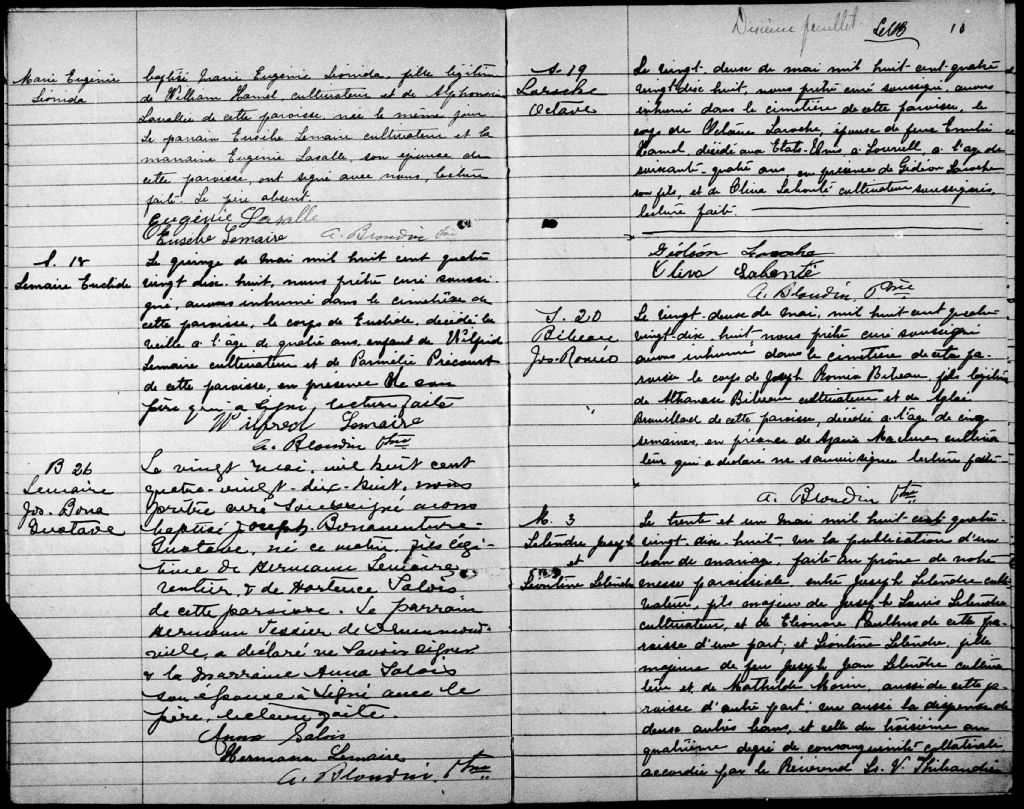 Marie Eugénie
Léonida
baptisé Marie Eugénie Léonida, fille légitime
de William Hamel cultivateur et de Alphonsine
Lavallée de cette paroisse née le même jour
Le parrain Eusèbe Lemaire cultivateur et la
marraine Eugénie Lasalle, son épouse de
cette paroisse, ont signé avec nous, lecture
faite. Le père absent.
Eugénie Lasalle
Eusèbe Lemaire A. Blondin Ptre
S. 18
Lemaire Euclide
Le quinze de Mai mil huit cent quatre
vingt dix-huit, nous prêtre curé soussi-
gné, avons inhumé dans le cimetière de
cette paroisse, le corps de Euclide, décédé la
veille à l'âge de quatre ans, enfant de Wilfrid
Lemaire cultivateur et de Parmélie Précourt
de cette paroisse, en présence de son
père qui a signé, lecture faite
Wilfred Lemaire
A. Blondin Ptre
B 26
Lemaire
Jos. Bona
Gustave
Le vingt mai, mil huit cent
quatre-vingt-dix-huit, nous
prêtre curé soussigné avons
baptisé Joseph Bonaventure-
Gustave, né ce matin, fils légi-
time de Hermann Lemaire
rentier, & de Hortence Salois
de cette paroisse. Le parrain
Hermann Tessier de Drummond-
ville, a déclaré ne savoir signer
& la marraine Anna Salois
son épouse a signé avec le
père, lecture faite.
Anna Salois
Hermann Lemaire
A. Blondin, Ptre
Dixième feuillet. 10
S. 19
Laroche
Octave
Le vingt-deux de mai mil huit cent quatre
vingt dix huit, nous prêtre curé soussigné, avons
inhumé dans le cimetière de cette paroisse, le
corps de Laroche, épouse de feue Emélie
Hamel, décédé aux Etats-Unis à Lowell à l'age de
soixante-quatre ans, en présence de Gédéon Laroche
son fils, et de Oliva Labonté cultivateur soussignés,
lecture faite.
Gédéon Laroche
Oliva Labonté
A. Blondin, Ptre
S. 20
Bibeau
Jos-Roméo
Le vingt-deux de Mai, mil huit cent quatre-
vingt-dix-huit nous prêtre curé soussigné
avons inhumé dans le cimetière de cette pa-
roisse le corps de Joseph Roméo Bibeau, fils légitime
de Athanase Bibeau cultivateur et de Aglaé
Brouillard de cette paroisse, décédé à l'âge de cinq
semaines, en présence de cultiva-
teur qui a déclaré ne savoir signer lecture faite
A. Blondin Ptre
M. 3
Lelendre Joseph
et
Léontine Lelendre
Le trente et un Mai mil huit cent quatre-
vingt-dix-huit, vu la publication d'un
ban de mariage, faite au prône de notre
messe paroissiale entre Joseph Lelendre culti-
vateur, fils majeur de Joseph Louis Lelendre
cultivateur, et de Eléonore Paulhus de cette pa-
roisse d'une part, et Léontine Lelendre, fille
majeure de feu Joseph Jean Lelendre cultiva-
teur et de Mathilde Morin, aussi de cette pa-
roisse d'autre part; vu aussi la dispense de
deux autres bans, et celle du troisième au
quatrième degré de consanguinité collatérale
accordée par le Révérend Ls. V. Thibaudier